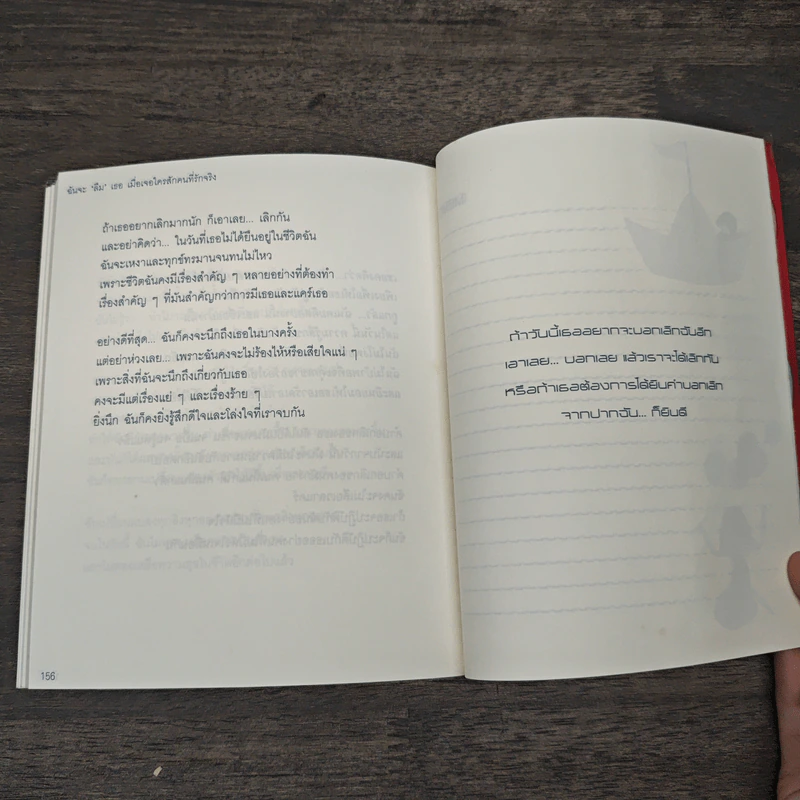 ฉันจะ 'ลืม' เธอ เมื่อเจอใครสักคนที่รักจริง
ถ้าเธออยากเลิกมากนัก ก็เอาเลย... เลิกกัน
และอย่าคิดว่า... ในวันที่เธอไม่ได้ยืนอยู่ในชีวิตฉัน
ฉันจะเหงาและทุกข์ทรมานจนทนไม่ไหว
เพราะชีวิตฉันคงมีเรื่องสำคัญ ๆ หลายอย่างที่ต้องทำ
เรื่องสำคัญ ๆ ที่มันสำคัญกว่าการมีเธอและแคร์เธอ
อย่างดีที่สุด... ฉันก็คงจะนึกถึงเธอในบางครั้ง
แต่อย่าห่วงเลย... เพราะฉันคงจะไม่ร้องไห้หรือเสียใจแน่ ๆ
เพราะสิ่งที่ฉันจะนึกถึงเกี่ยวกับเธอ
คงจะมีแต่เรื่องแย่ ๆ และเรื่องร้าย ๆ
ยิ่งนึก ฉันก็คงยิ่งรู้สึกดีใจและโล่งใจที่เราจบกัน
156
ถ้าวันนี้เธออยากจะบอกเลิกฉันสัก
เอาเลย... บอกเลย แล้วเราจะได้เลิกกัน
หรือถ้าเธอต้องการได้ยินคำบอกเลิก
จากปากฉัน... ก็ยินดี